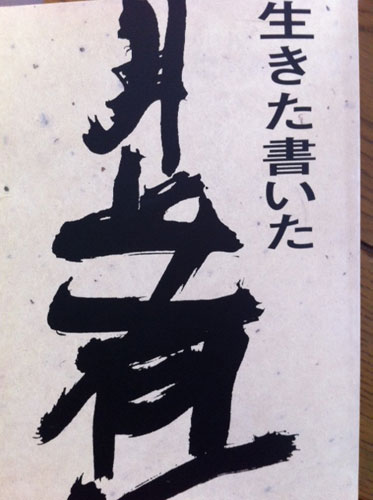 生きた書いた
井上有一